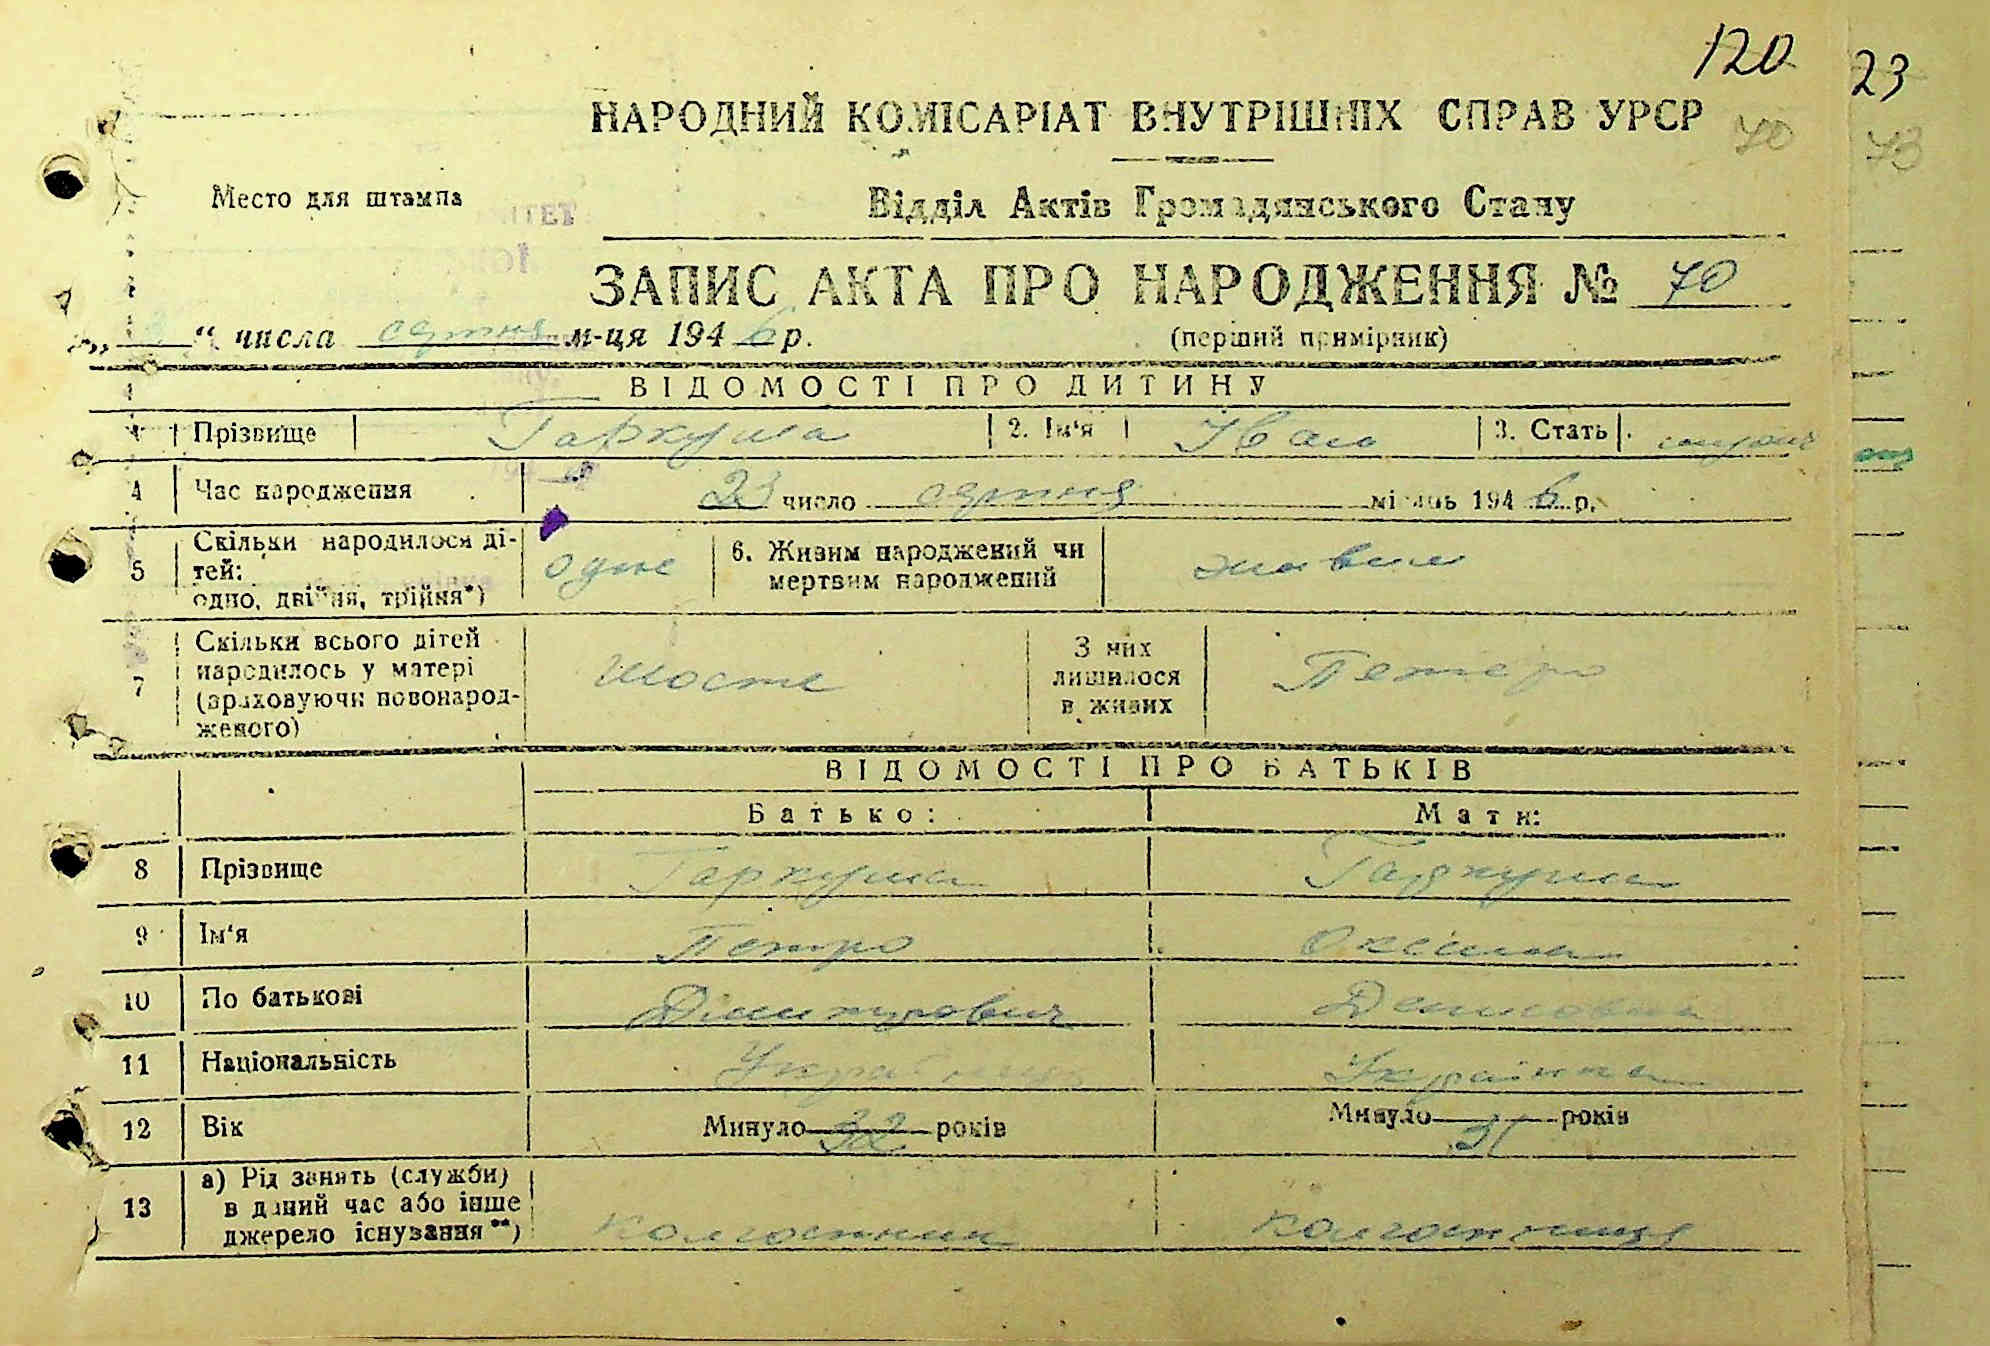 120
23
НАРОДНИЙ КОМІСАРІАТ ВНУТРІШНІХ СПРАВ УРСР
70
73
Место для штампа
Відділ Актів Громадянського Стану
ЗАПИС АКТА ПРО НАРОДЖЕННЯ № 70
„ “ числа серпня м-ця 1946 р.
(перший примірник)
ВІДОМОСТІ ПРО ДИТИНУ
1 Прізвище Гаркуша 2. Ім'я Іван 3. Стать
4 Час народження 23 число серпня місяць 1946 р.
5 Скільки народилося ді-
тей:
одно, двійня, трійня*)
одне
6. Живим народжений чи
мертвим народжений
живим
7 Скільки всього дітей
народилось у матері
(враховуючи новонарод-
женого)
шосте
З них
лишилося
в живих
Петеро
ВІДОМОСТІ ПРО БАТЬКІВ
Батько: Мати:
8 Прізвище Гаркуша Гаркуша
9 Ім'я Петро Оксана
10 По батькові Дімитрович Денисовна
11 Національність Українець Українка
12 Вік Минуло 32 років Минуло 31 років
13 а) Рід занять (служби)
в даний час або інше
джерело існування**)
колгоспник колгоспниця